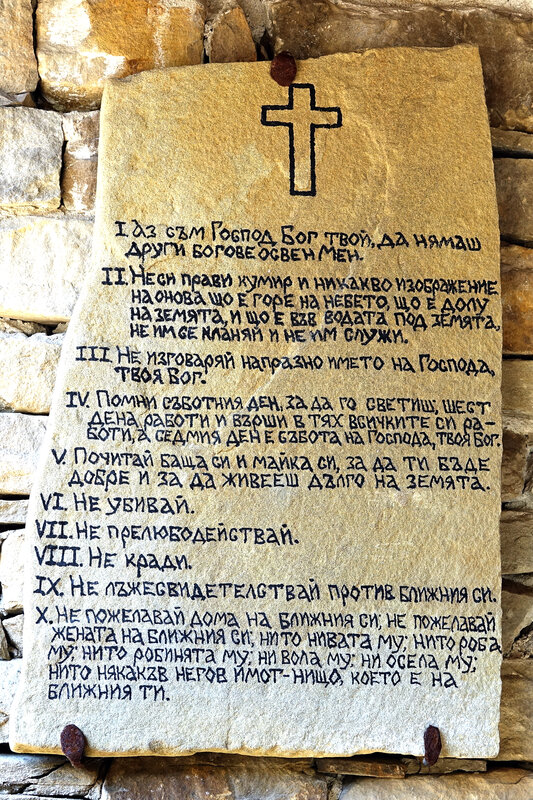 I. Аз съм Господ Бог твой, да нямаш
други богове освен мен.
II. Не си прави кумир и никакво изображение
на онова що е горе на небето, що е долу
на земята, и що е във водата под земята,
не им се кланяй и не им служи.
III. Не изговаряй напразно името на Господа,
твоя Бог.
IV. Помни съботния ден, за да го светиш, шест
дена работи и върши в тях всичките си ра-
боти, а седмия ден е събота на Господа, твоя Бог.
V. Почитай баща си и майка си, за да ти бъде
добре и за да живееш дълго на земята.
VI. Не убивай.
VII. Не прелюбодействай.
VIII. Не кради.
IX. Не лъжесвидетелствай против ближния си.
X. Не пожелавай дома на ближния си; не пожелавай
жената на ближния си; нито нивата му; нито роба
му; нито робинята му; ни вола му; ни осела му;
нито някакъв негов имот-нищо, което е на
ближния ти.